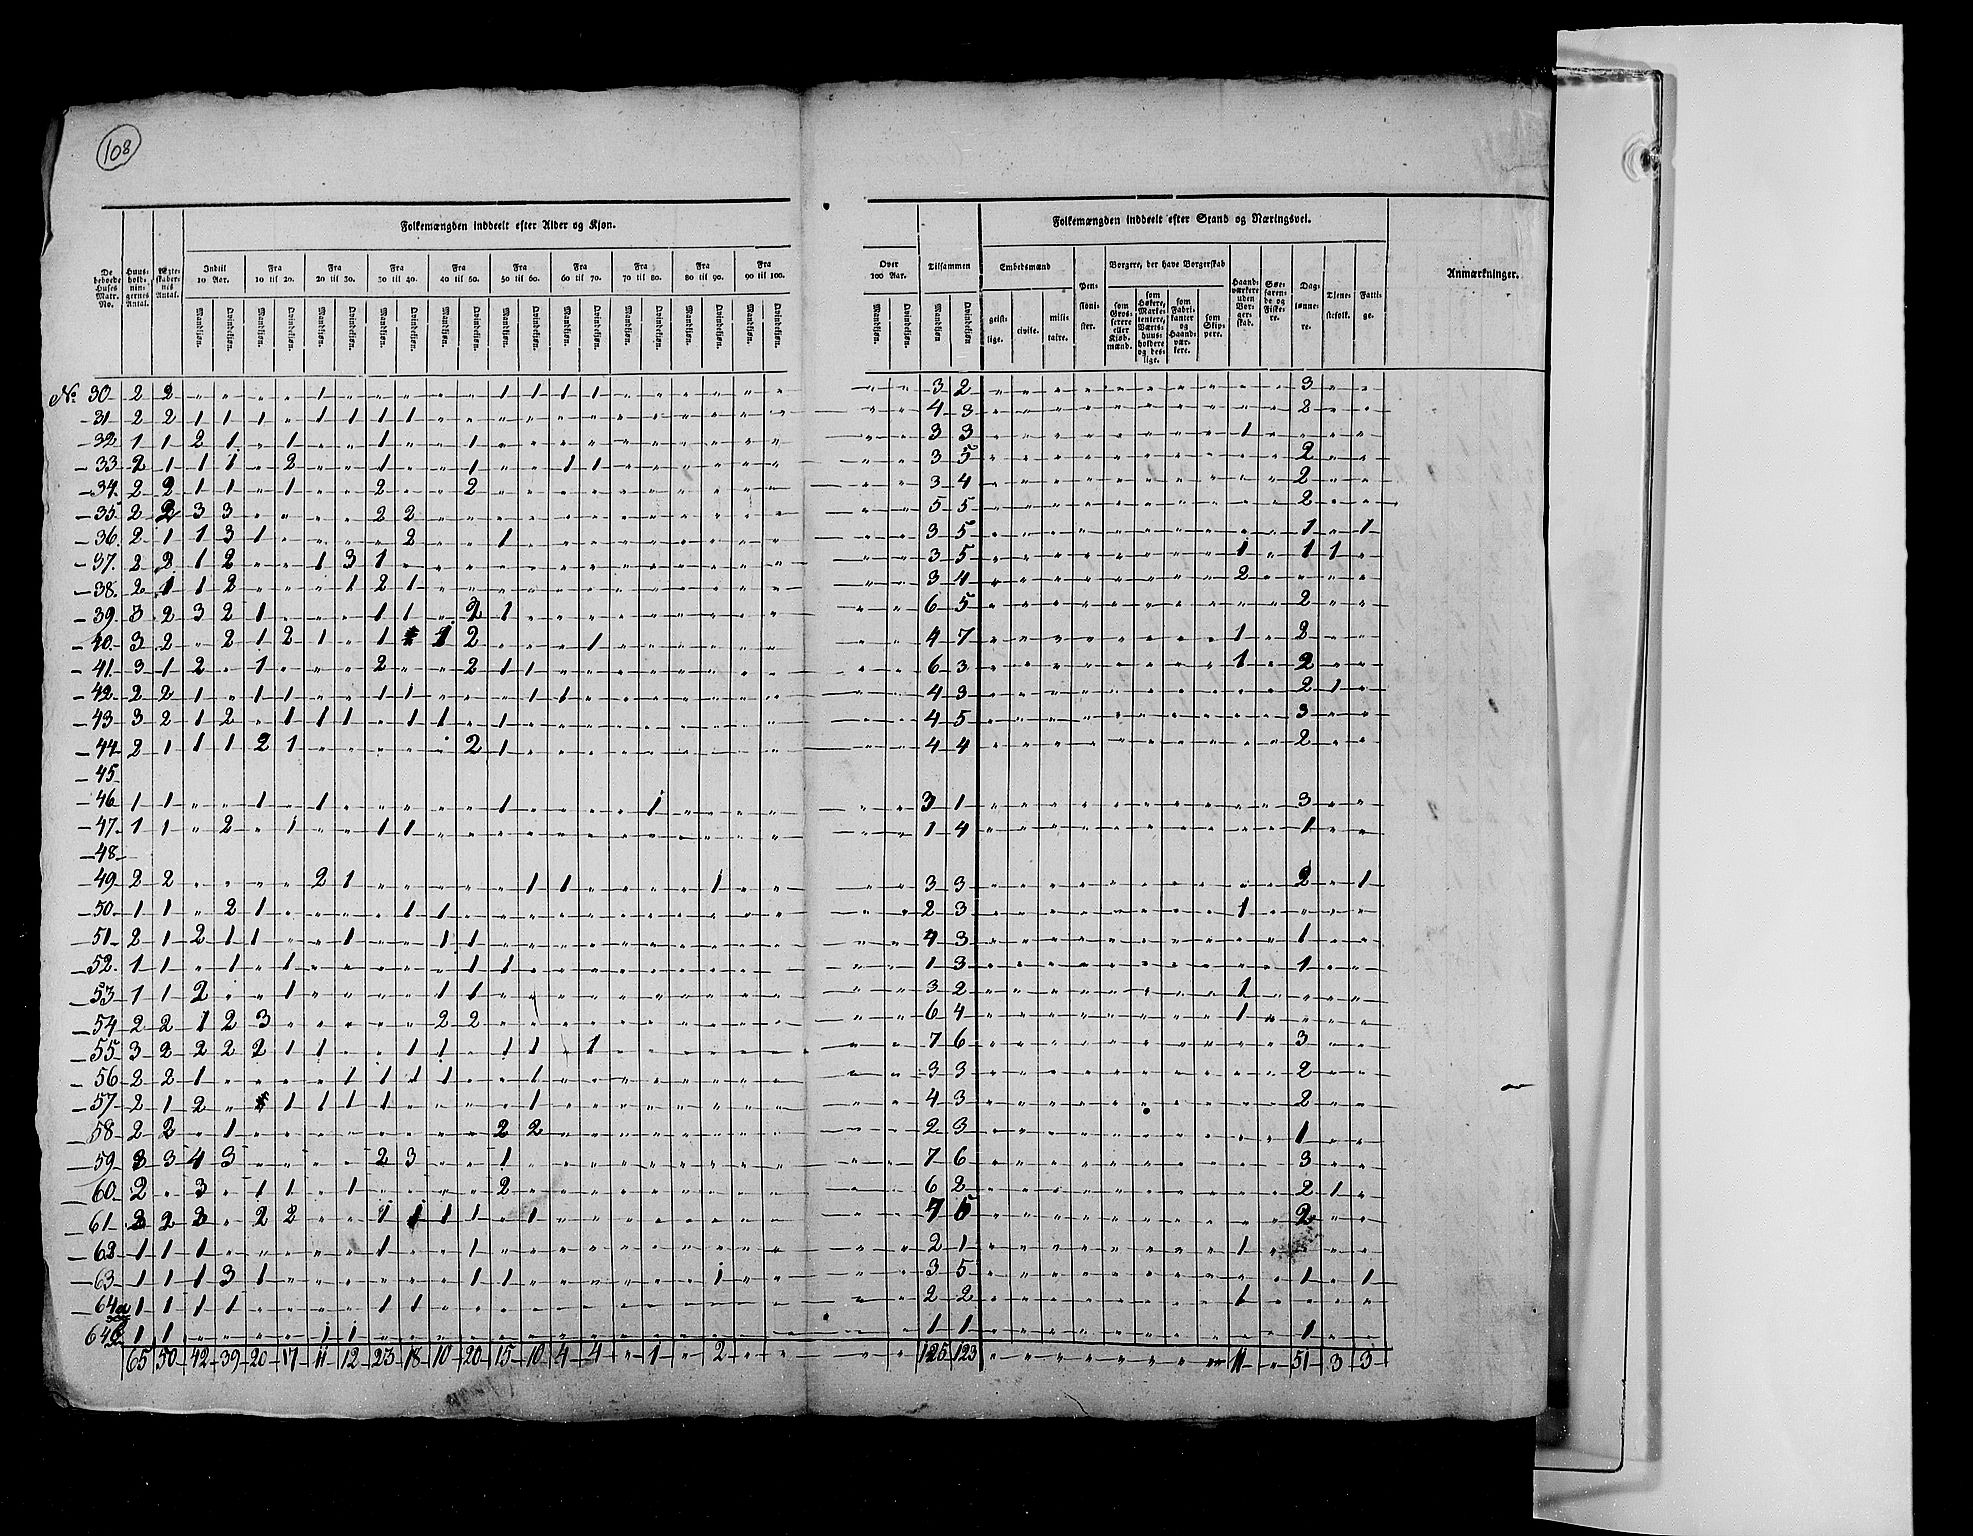 108
Folkemængden inddeelt efter Alder og Kjøn. Folkemængden inddeelt efter Stand og Næringsvei.
De beboede Huses Matr. No. Huus-holdnin-gernes Antal. Ægte-skaber-nis Antal. Indtil 10 Aar. Fra 10 til 20. Fra 20 til 30. Fra 30 til 40. Fra 40 til 50. Fra 50 til 60. Fra 60 til 70. Fra 70 til 80. Fra 80 til 90. Fra 90 til 100. Over 100 Aar. Tilsammen Embedsmænd Pen-sioni-ster. Borgere, der have Borgerskab Haand-værkere uden Bor-ger-skab. Søe-faren-de og Fiske-re. Dag-lønne-re. Tjene-stefolk. Fatti-ge. Anmærkninger.
Mandkjøn. Qvindekjøn. Mandkjøn. Qvindekjøn. Mandkjøn. Qvindekjøn. Mandkjøn. Qvindekjøn. Mandkjøn. Qvindekjøn. Mandkjøn. Qvindekjøn. Mandkjøn. Qvindekjøn. Mandkjøn. Qvindekjøn. Mandkjøn. Qvindekjøn. Mandkjøn. Qvindekjøn. Mandkjøn. Qvindekjøn. Mandkjøn Qvindekjøn geist-lige. civile. mili-taire. som Gros-serere eller Kjøb-mænd. som Høkere, Marke-tentere, Værts-huus-holdere og des-lige. som Fabri-kanter og Haand-vær-kere. som Skip-pere.
No. 30 2 2 " " " " 1 " " " " " 1 1 1 1 " " " " " " " " 3 2 " " " " " " " " " " 3 " "
31 2 2 1 1 1 " 1 1 1 1 " " " " " " " " " " " " " " 4 3 " " " " " " " " " " 2 " "
32 1 1 2 1 " 1 " " 1 " " 1 " " " " " " " " " " " " 3 3 " " " " " " " " 1 " " " "
33 2 1 1 1 " 2 " " 1 " " 1 " " 1 1 " " " " " " " " 3 5 " " " " " " " " " " 2 " "
34 2 2 1 1 " 1 " " 2 " " 2 " " " " " " " " " " " " 3 4 " " " " " " " " " " 2 " "
35 2 2 3 3 " " " " 2 2 " " " " " " " " " " " " " " 5 5 " " " " " " " " " " 2 " "
36 2 1 1 3 1 " " " " 2 " " 1 " " " " " " " " " " " 3 5 " " " " " " " " " " 1 " 1
37 2 2 1 2 " " 1 3 1 " " " " " " " " " " " " " " " 3 5 " " " " " " " " 1 " 1 1 "
38 2 1 1 2 " " " 1 2 1 " " " " " " " " " " " " " " 3 4 " " " " " " " " 2 " " " "
39 3 2 3 2 1 " " " 1 1 " 2 1 " " " " " " " " " " " 6 5 " " " " " " " " " " 2 " "
40 3 2 " 2 1 2 1 " 1 " 1 2 " " " 1 " " " " " " " " 4 7 " " " " " " " " 1 " 2 " "
41 3 1 2 " 1 " " " 2 " " 2 1 1 " " " " " " " " " " 6 3 " " " " " " " " 1 " 2 " "
42 2 2 1 " 1 1 " " 1 1 " " " 1 1 " " " " " " " " " 4 3 " " " " " " " " " " 2 1 "
43 3 2 1 2 " 1 1 1 " 1 1 " 1 " " " " " " " " " " " 4 5 " " " " " " " " " " 3 " "
44 2 1 1 1 2 1 " " " " " 2 1 " " " " " " " " " " " 4 4 " " " " " " " " " " 2 " "
45
46 1 1 " " 1 " 1 " " " " " 1 " " " " 1 " " " " " " 3 1 " " " " " " " " " " 3 " "
47 1 1 " 2 " 1 " " 1 1 " " " " " " " " " " " " " " 1 4 " " " " " " " " " " 1 " "
48
49 2 2 " " " " 2 1 " " " " " 1 1 " " " " 1 " " " " 3 3 " " " " " " " " " " 2 " 1
50 1 1 " 2 1 " " " " 1 1 " " " " " " " " " " " " " 2 3 " " " " " " " " 1 " " " "
51 2 1 2 1 1 " " 1 " " 1 1 " " " " " " " " " " " " 4 3 " " " " " " " " " " 1 " "
52 1 1 " 1 " 1 " " " " " 1 1 " " " " " " " " " " " 1 3 " " " " " " " " " " 1 " "
53 1 1 2 " " 1 " " " " 1 1 " " " " " " " " " " " " 3 2 " " " " " " " " 1 " " " "
54 2 2 1 2 3 " " " " " 2 2 " " " " " " " " " " " " 6 4 " " " " " " " " 1 " " " "
55 3 2 2 2 2 1 1 " " 1 1 " 1 1 " 1 " " " " " " " " 7 6 " " " " " " " " " " 3 " "
56 2 2 1 " " " " 1 1 1 1 " " 1 " " " " " " " " " " 3 3 " " " " " " " " " " 2 " "
57 2 1 2 " " 1 1 1 1 " " " " 1 " " " " " " " " " " 4 3 " " " " " " " " " " 2 " "
58 2 2 " 1 " " " " " " " " 2 2 " " " " " " " " " " 2 3 " " " " " " " " " " 1 " "
59 3 3 4 3 " " " " 2 3 " " 1 " " " " " " " " " " " 7 6 " " " " " " " " " " 3 " "
60 2 " 3 " 1 1 " 1 " " " " 2 " " " " " " " " " " " 6 2 " " " " " " " " " " 2 1 "
61 3 2 3 " 2 2 " " 1 1 1 1 " 1 " " " " " " " " " " 7 5 " " " " " " " " " " 2 " "
62 1 1 1 " " " " " 1 " " 1 " " " " " " " " " " " " 2 1 " " " " " " " " 1 " " " "
63 1 1 1 3 1 " " " " " " 1 1 " " " " " " 1 " " " " 3 5 " " " " " " " " " " 1 " 1
64a 1 1 1 1 " " " " 1 1 " " " " " " " " " " " " " " 2 2 " " " " " " " " 1 " " " "
64 1 1 " " " " 1 1 " " " " " " " " " " " " " " " " 1 1 " " " " " " " " " " 1 " "
65 50 42 39 20 17 11 12 23 18 10 20 15 10 4 4 " 1 " 2 " " " " 125 123 " " " " " " " " 11 " 51 3 3